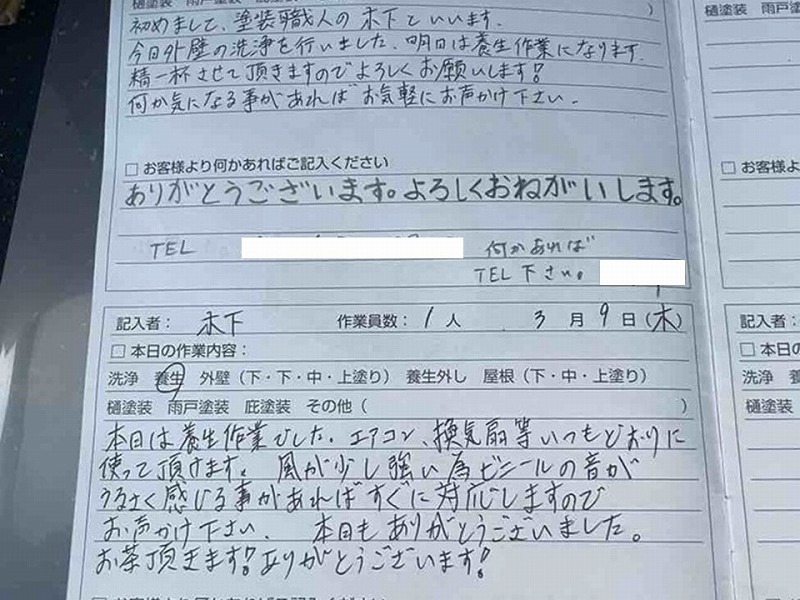 樋塗装 雨戸塗装 )
初めまして、塗装職人の木下といいます。
今日外壁の洗浄を行いました、明日は養生作業になります。
精一杯させて頂きますのでよろしくお願いします!
何か気になる事があればお気軽にお声かけ下さい。
□ お客様より何かあればご記入ください
ありがとうございます。よろしくおねがいします。
TEL 何かあれば
TEL下さい。
記入者: 木下 作業員数: 1人 3月9日(木)
□ 本日の作業内容:
洗浄 養生 外壁(下・下・中・上塗り) 養生外し 屋根(下・中・上塗り)
樋塗装 雨戸塗装 庇塗装 その他( )
本日は養生作業でした。エアコン、換気扇等いつもどおりに
使って頂けます。風が少し強い為ビニールの音が
うるさく感じる事があればすぐに対応しますので
お声かけ下さい。 本日もありがとうございました。
お茶頂きます!ありがとうございます!
樋塗装 雨戸
□ お客様よ
記入者:
□ 本日の
洗浄 養
樋塗装